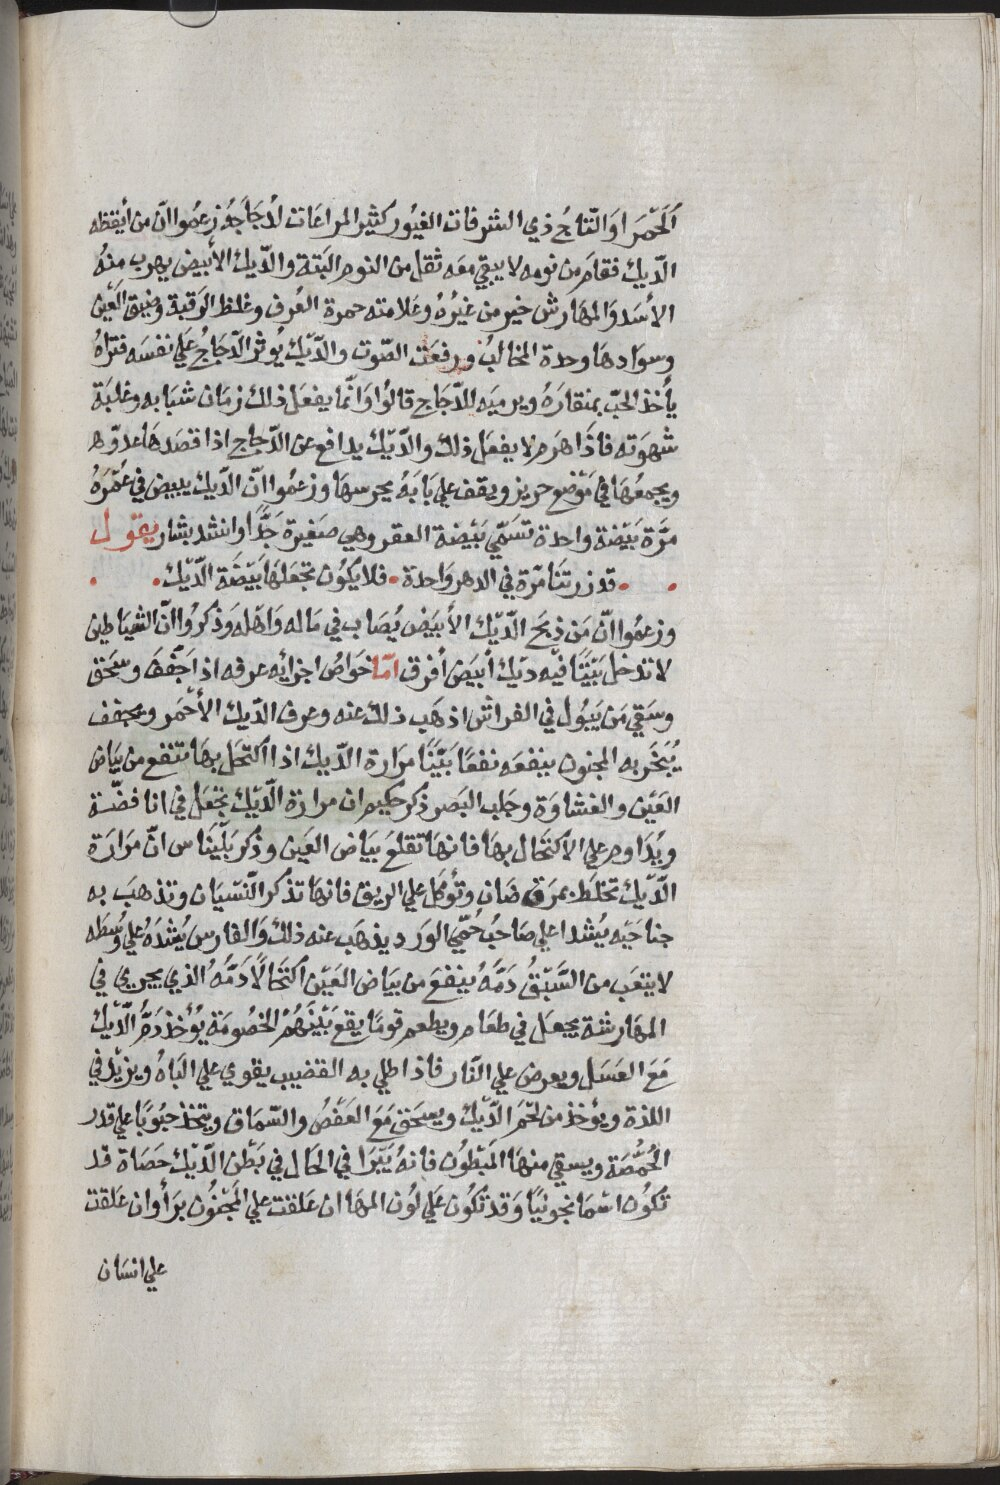 الحمرا والتاج ذي الشرفات الغيور كثير المراعات لدجاجه زعموا ان من أيقظه
الديك فقام من نومه لا يبقي معه ثقل من النوم البتة والديك الأبيض يهرب منه
الأسد والمهارش خير من غيره وعلامته حمرة العرف وغلظ الرقبة وضيق العين
وسوادها وحدة المخالب ورفعت الصوت والديك يوثر الدجاج علي نفسه فتراه
يأخذ الحب بمنقاره ويرميه للدجاج قالوا وانما يفعل ذلك زمان شبابه وغلبة
شهوته فاذا هرم لا يفعل ذلك والديك يدافع عن الدجاج اذا قصدها عدوه
ويجمعها في موضع حريز ويقف علي بابه يحرسها وزعموا ان الديك يبيض في عمره
مرة بيضة واحدة تسمي بيضة العقر وهي صغيرة جدا وانشد بشار يقول
قد زرتنا مرة في الدهر واحدة • فلا يكون تجعلها بيضة الديك •
وزعموا ان من ذبح الديك الأبيض يصاب في ماله واهله وذكروا ان الشياطين
لا تدخل بيتا فيه ديك أبيض أفرق اما خواص اجزائه عرفه اذا جفف وسحق
وسقي من يبول في الفراش اذهب ذلك عنه وعرف الديك الأحمر ويجفف
يبخر به المجنون ينفعه نفعا بينا مرارة الديك اذا اكتحل بها تنفع من بياض
العين والغشاوة وجلب البصر ذكر حكيم ان مرارة الديك تجعل في انا فضة
ويداوم علي الاكتحال بها فانها تقلع بياض العين وذكر بليناس ان مرارة
الديك تخلط بمرق ضان وتؤكل علي الريق فانها تذكر النسيان وتذهب به
جناحيه يشدا علي صاحب حمي الورد يذهب عنه ذلك والفارس يشده علي وسطه
لا يتعب من السبق دمه ينفع من بياض العين اكتحالا دمه الذي يجري في
المهارشة يجعل في طعام ويطعم قوما يقع بينهم الخصومة يؤخذ دم الديك
مع العسل ويعرض علي النار فاذا طلي به القضيب يقوي علي الباه ويزيد في
اللذة ويؤخذ من لحم الديك ويسحق مع العفص والسماق ويتخذ حبوبا علي قدر
الحمصة ويسقي منها المبطون فانه يبرا في الحال في بطن الديك حصاة قد
تكون اسمانجونيا وقد تكون علي لون المها ان علقت علي المجنون برأ وان علقت
علي انسان